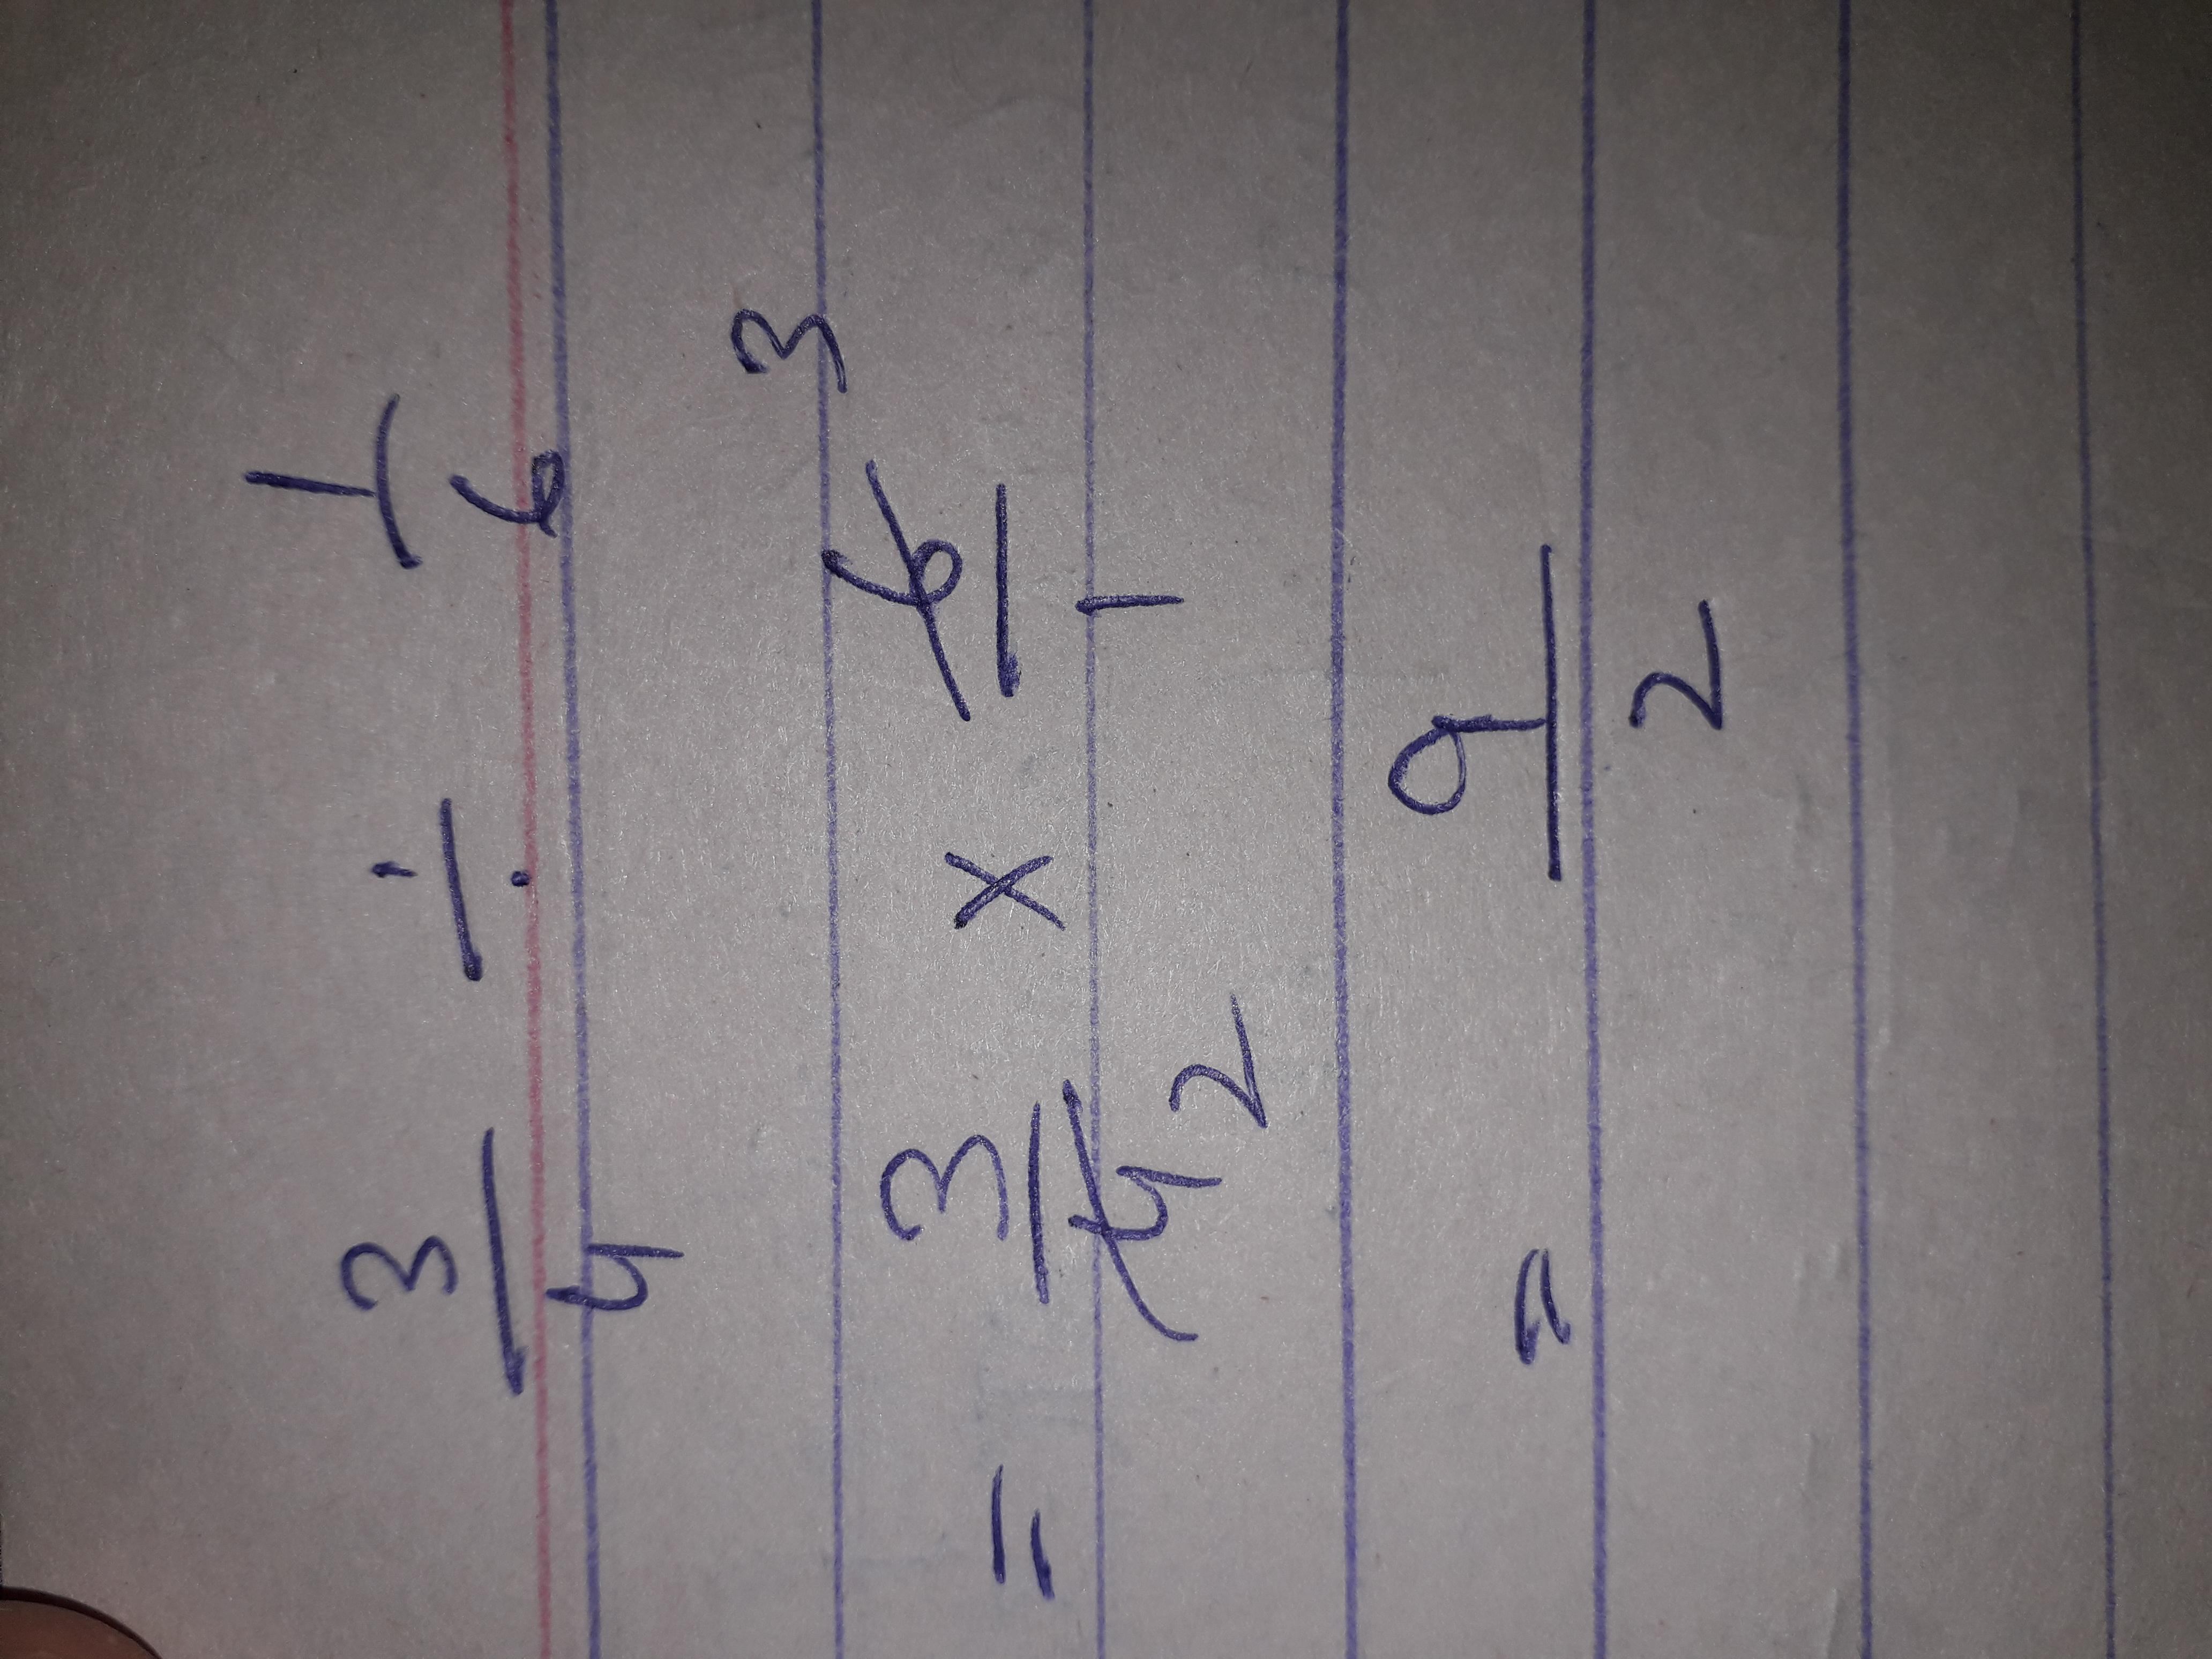 3/4 ÷ 1/6
= 3/4 2 × 6/1 3
= 9/2